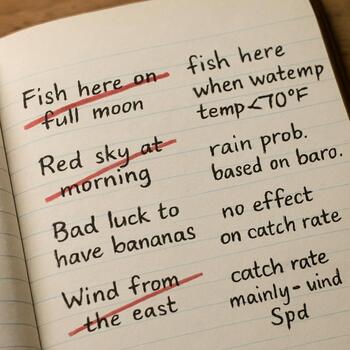 Fish here on
full moon
fish here
when watemp
temp<70°F
Red sky at
morning
rain prob.
based on baro.
Bad luck to
have bananas
no effect
on catch rate
Wind from
the east
catch rate
mainly-uind
Spd